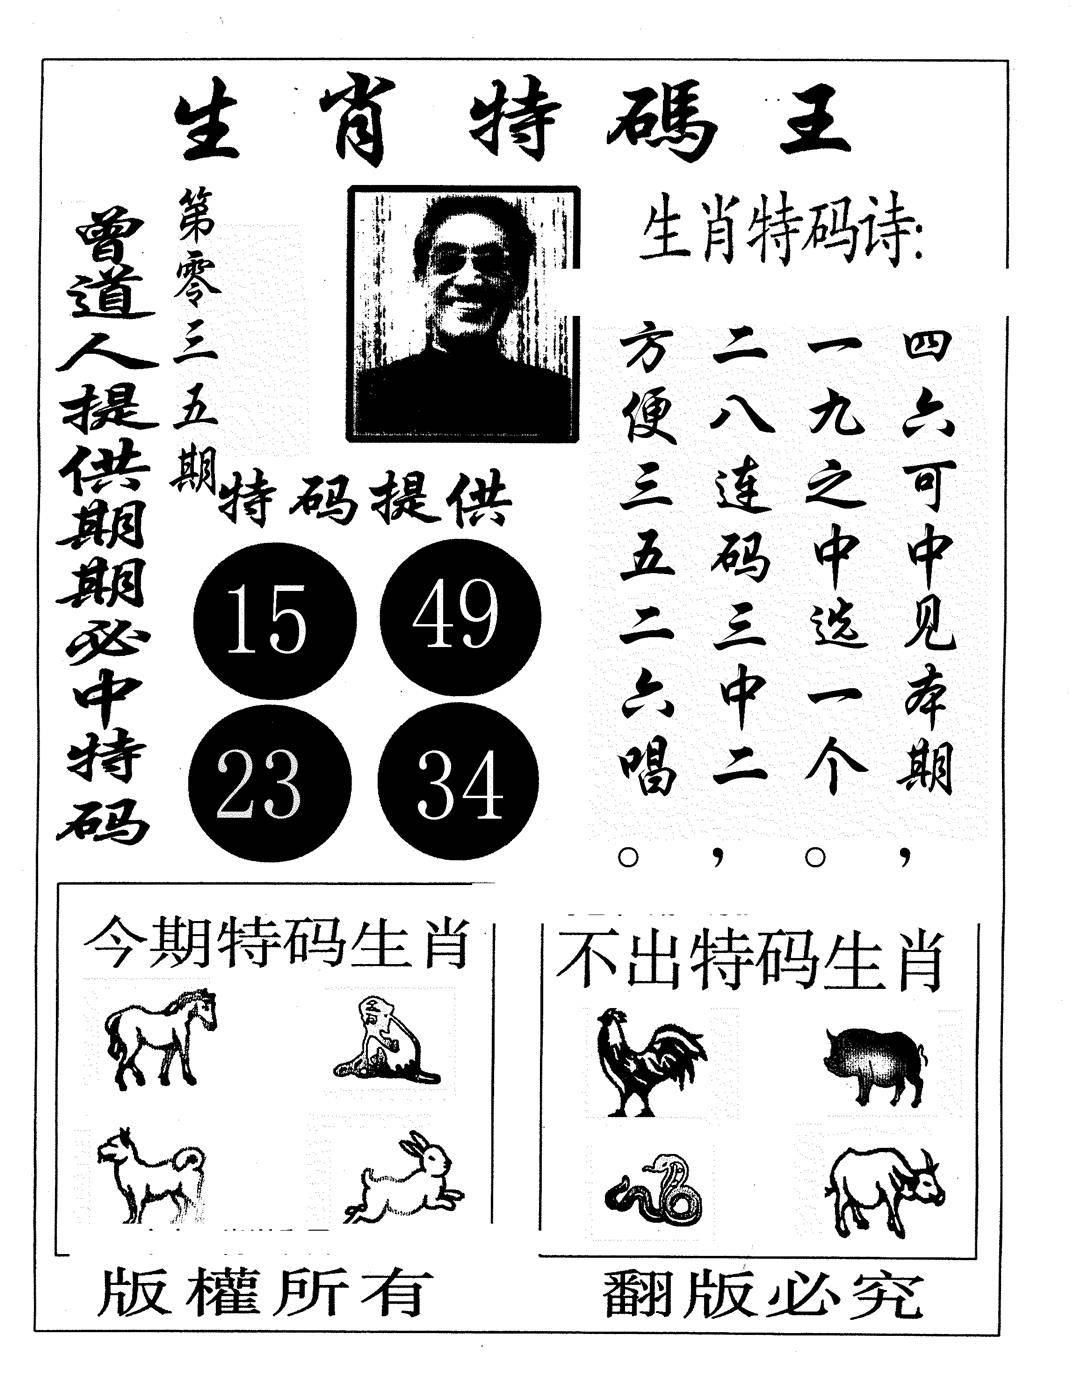 生肖特碼王
曾道人提供期期必中特码
第零三五期
生肖特码诗:
四六可中见本期，
一九之中选一个。
二八连码三中二，
方便三五二六唱。
特码提供
15 49
23 34
今期特码生肖
不出特码生肖
版權所有
翻版必究